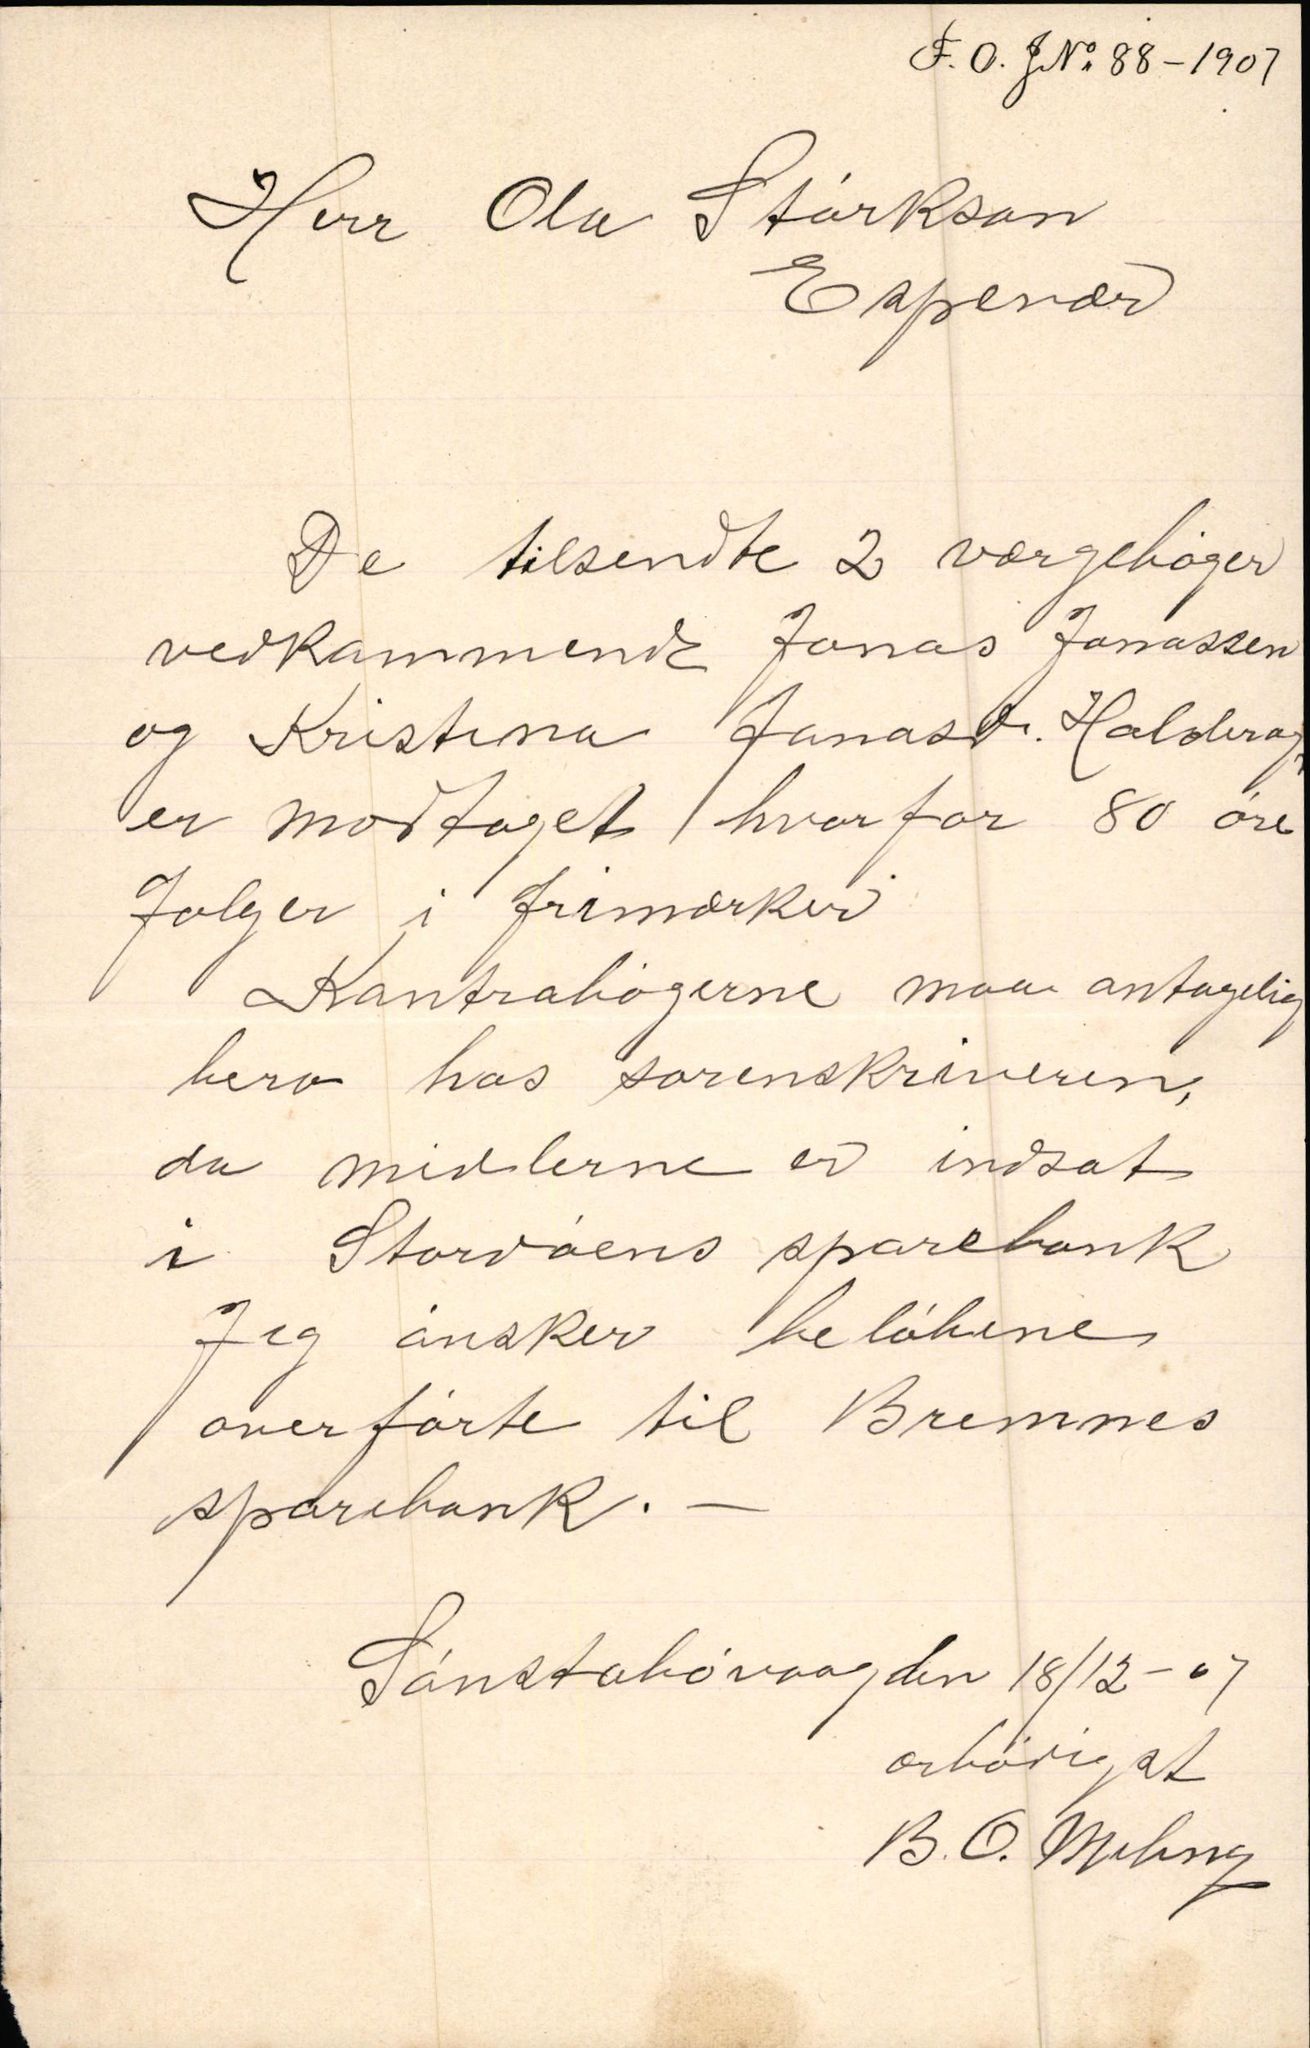 F. O. J No. 88 – 1907
Herr Ola Störkson
Espevær
De tilsendte 2 værgebøger
vedkommende Jonas Jonassen
og Kristina Jonasd.
er modtaget hvorfor 80 öre
følger i frimærker
Kontrabøgerne maa antagelig
bero hos sorenskriveren,
da midlerne er indsat
i Stordöens sparebank
Jeg önsker belöbene
overförte til Bremnes
sparebank. —
den 18/12 – 07
ærbödigst
B. O. Meling